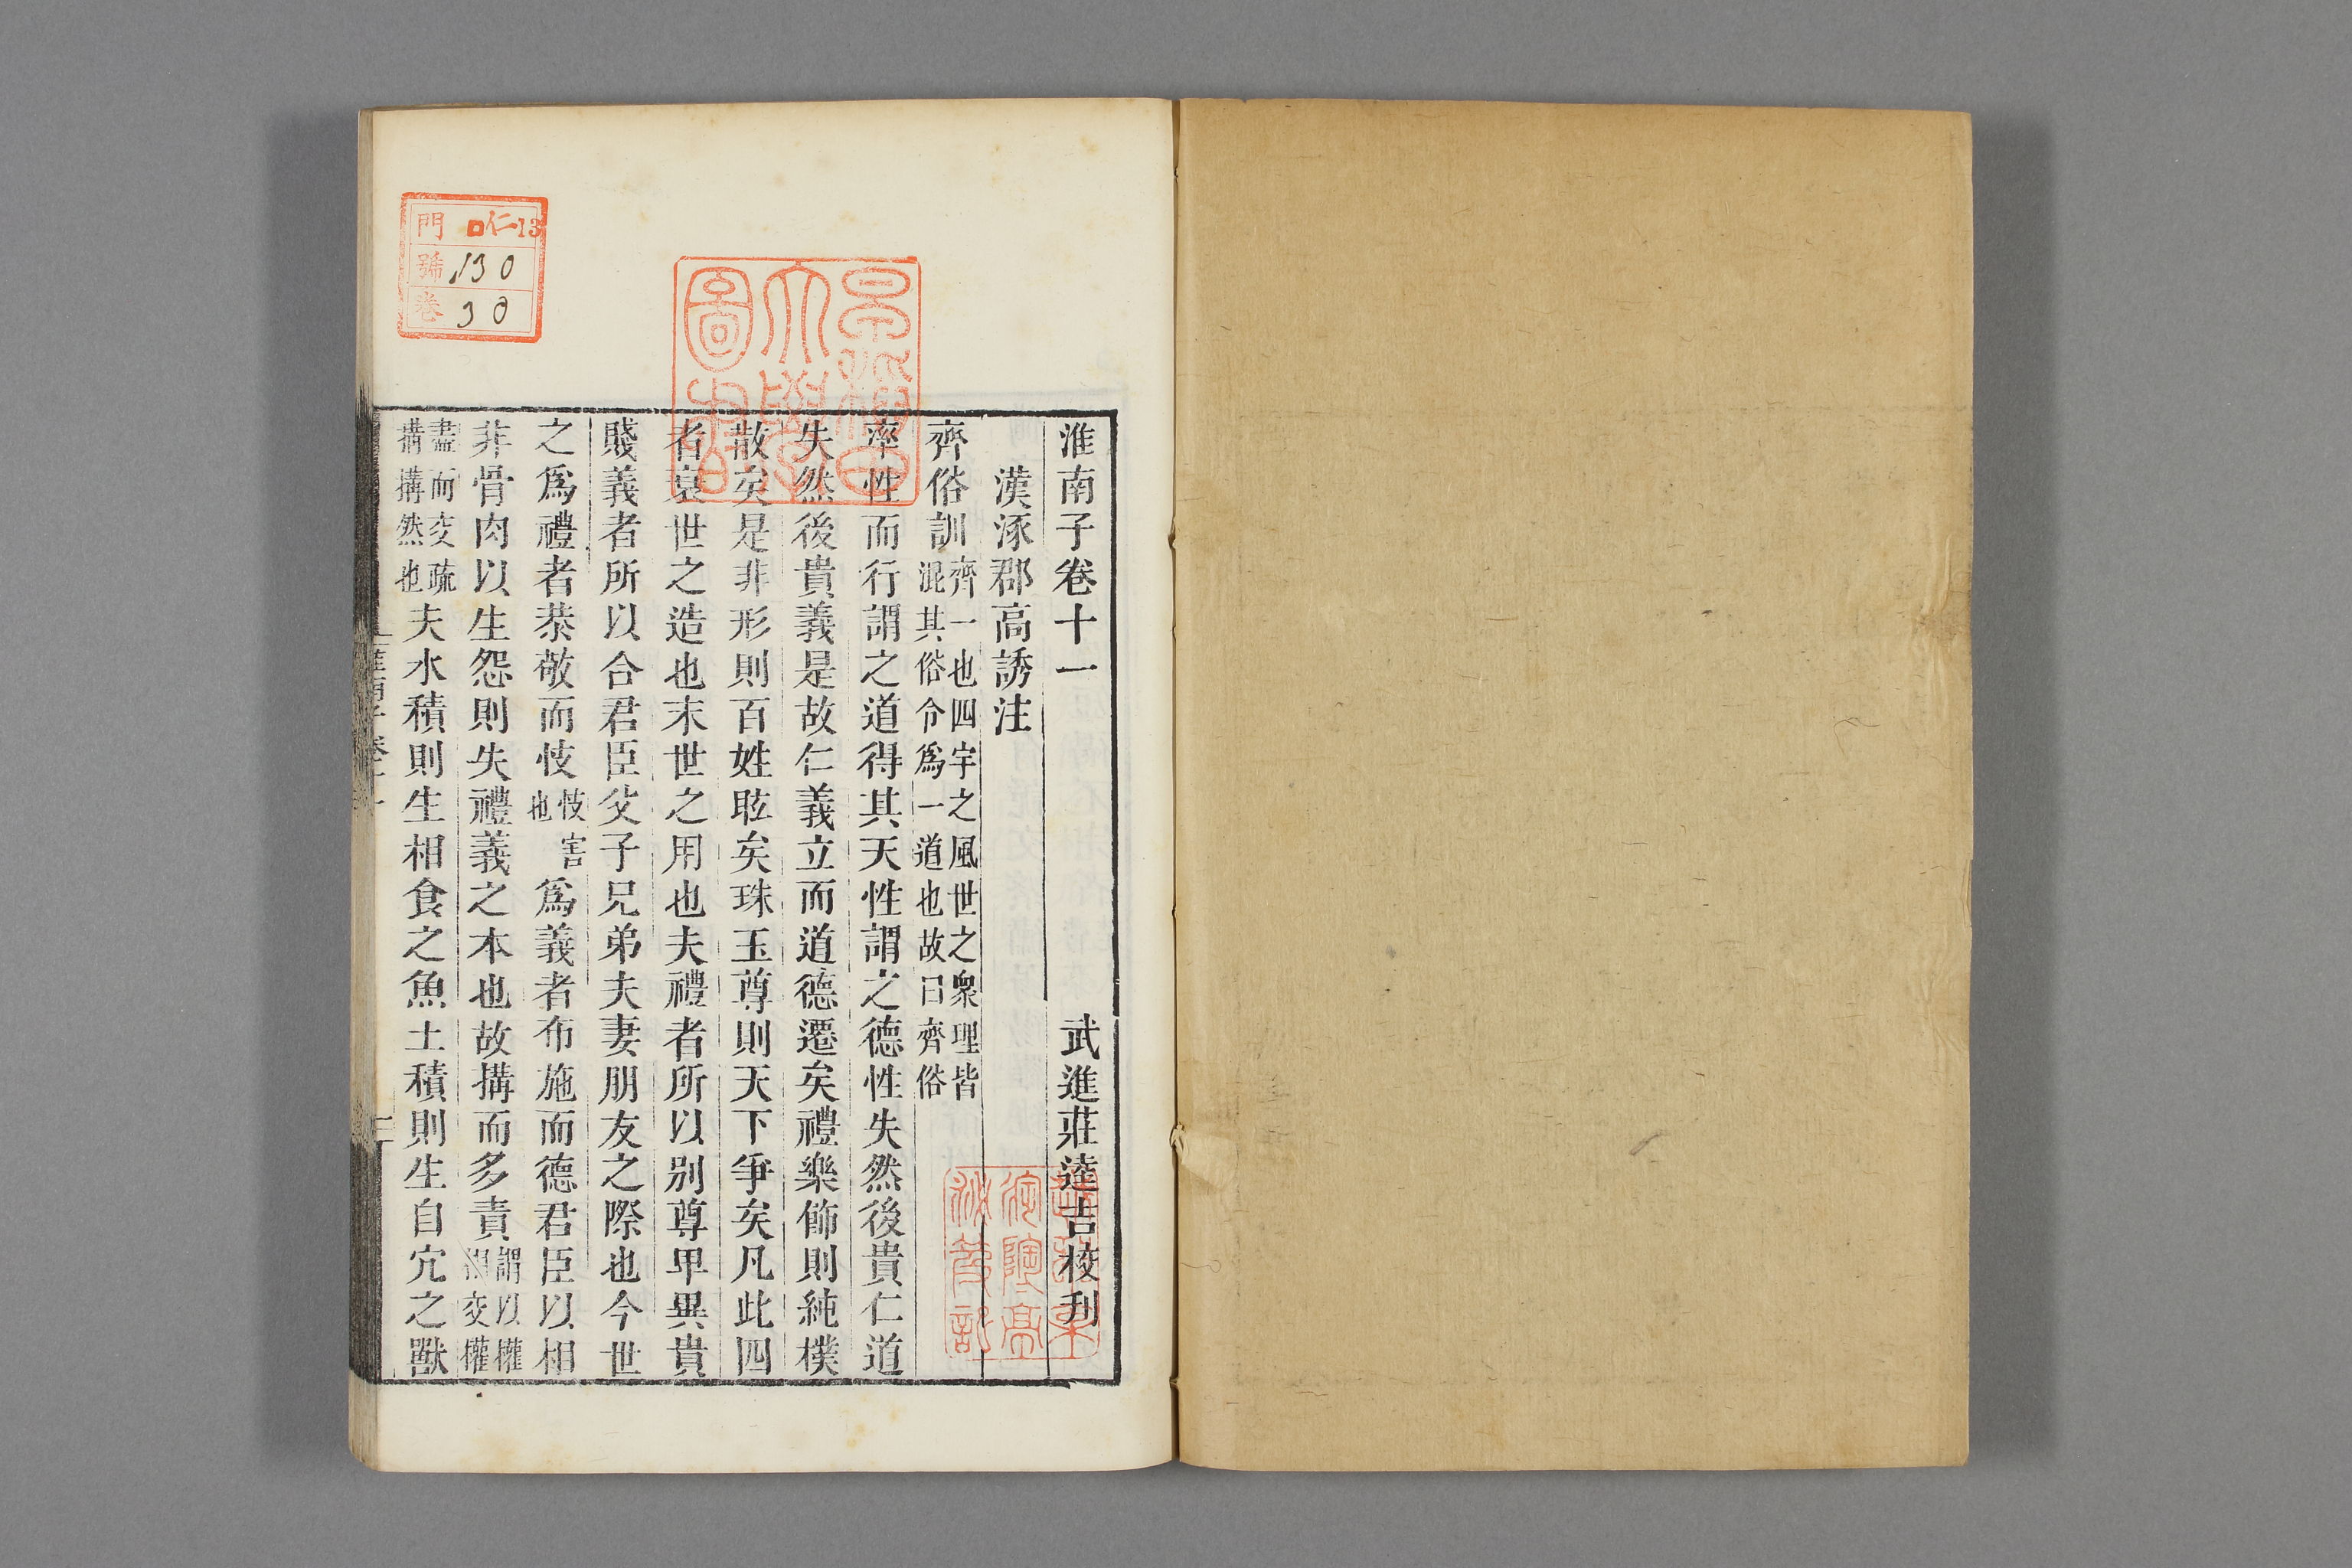 淮南子卷十一　武進莊逵吉校刋
漢涿郡高誘注
齊俗訓齊一也四宇之風世之眾理皆混其俗令爲一道也故曰齊俗
率性而行謂之道得其天性謂之德性失然後貴仁道
失然後貴義是故仁義立而道德遷矣禮樂飾則純樸
散矣是非形則百姓眩矣珠玉尊則天下爭矣凡此四
者衰世之造也末世之用也夫禮者所以别尊卑異貴
賤義者所以合君臣父子兄弟夫妻朋友之際也今世
之爲禮者恭敬而忮忮害也爲義者布施而德君臣以相
非骨肉以生怨則失禮義之本也故搆而多責謂以權相交權
盡而交疏搆搆然也夫水積則生相食之魚土積則生自宂之獸
淮南子卷十一
門 ロ仁13
號 130
卷 30
早稲田
大學
圖書